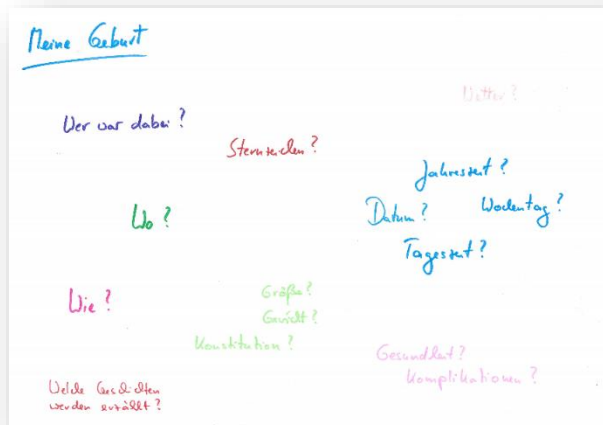 Meine Geburt
Wetter?
Wer war dabei?
Sternzeichen?
Jahreszeit?
Wo?
Datum? Wochentag?
Tageszeit?
Wie?
Größe?
Gewicht?
Konstitution?
Gesundheit?
Komplikationen?
Welche Geschichten
werden erzählt?